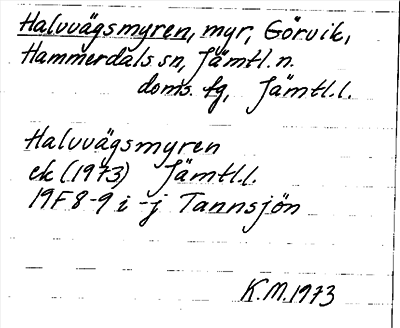 Halvvägsmyren, myr, Görvik,
Hammerdals sn, Jämtl. n.
doms. fg, Jämtl.l.
Halvvägsmyren
ek (1973) Jämtl.l.
19F 8-9 i-j Tannsjön
K.M.1973